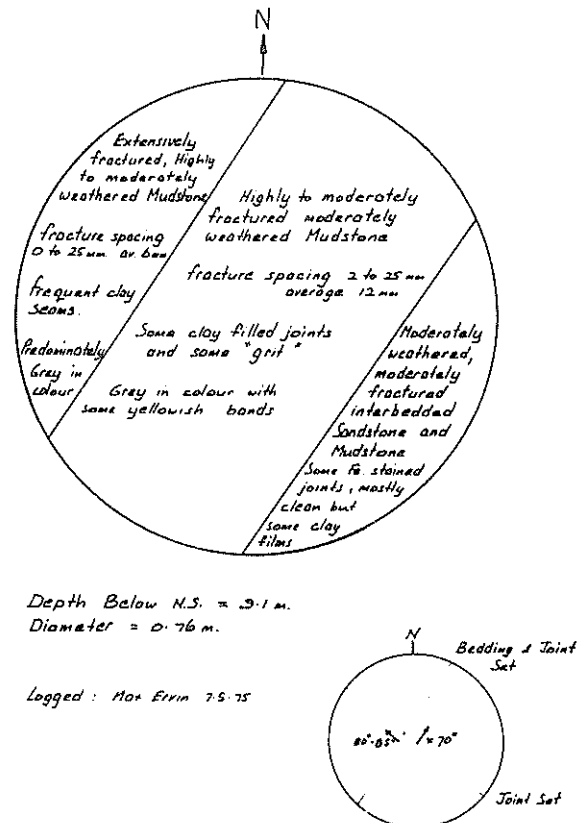 N
Extensively
fractured, Highly
to moderately
weathered Mudstone
fracture spacing
0 to 25mm av. 6mm
frequent clay
seams.
Predominately
Grey in
colour
Highly to moderately
fractured moderately
weathered Mudstone
fracture spacing 2 to 25 mm
average 12 mm
Some clay filled joints
and some "grit"
Grey in colour with
some yellowish bands
Moderately
weathered,
moderately
fractured
interbedded
Sandstone and
Mudstone
Some Fe. stained
joints, mostly
clean but
some clay
films
Depth Below N.S. = 9.1 m.
Diameter = 0.76 m.
Logged : Max Ervin 7.5.75
N
Bedding & Joint
Set
80°-85°
70°
Joint Set